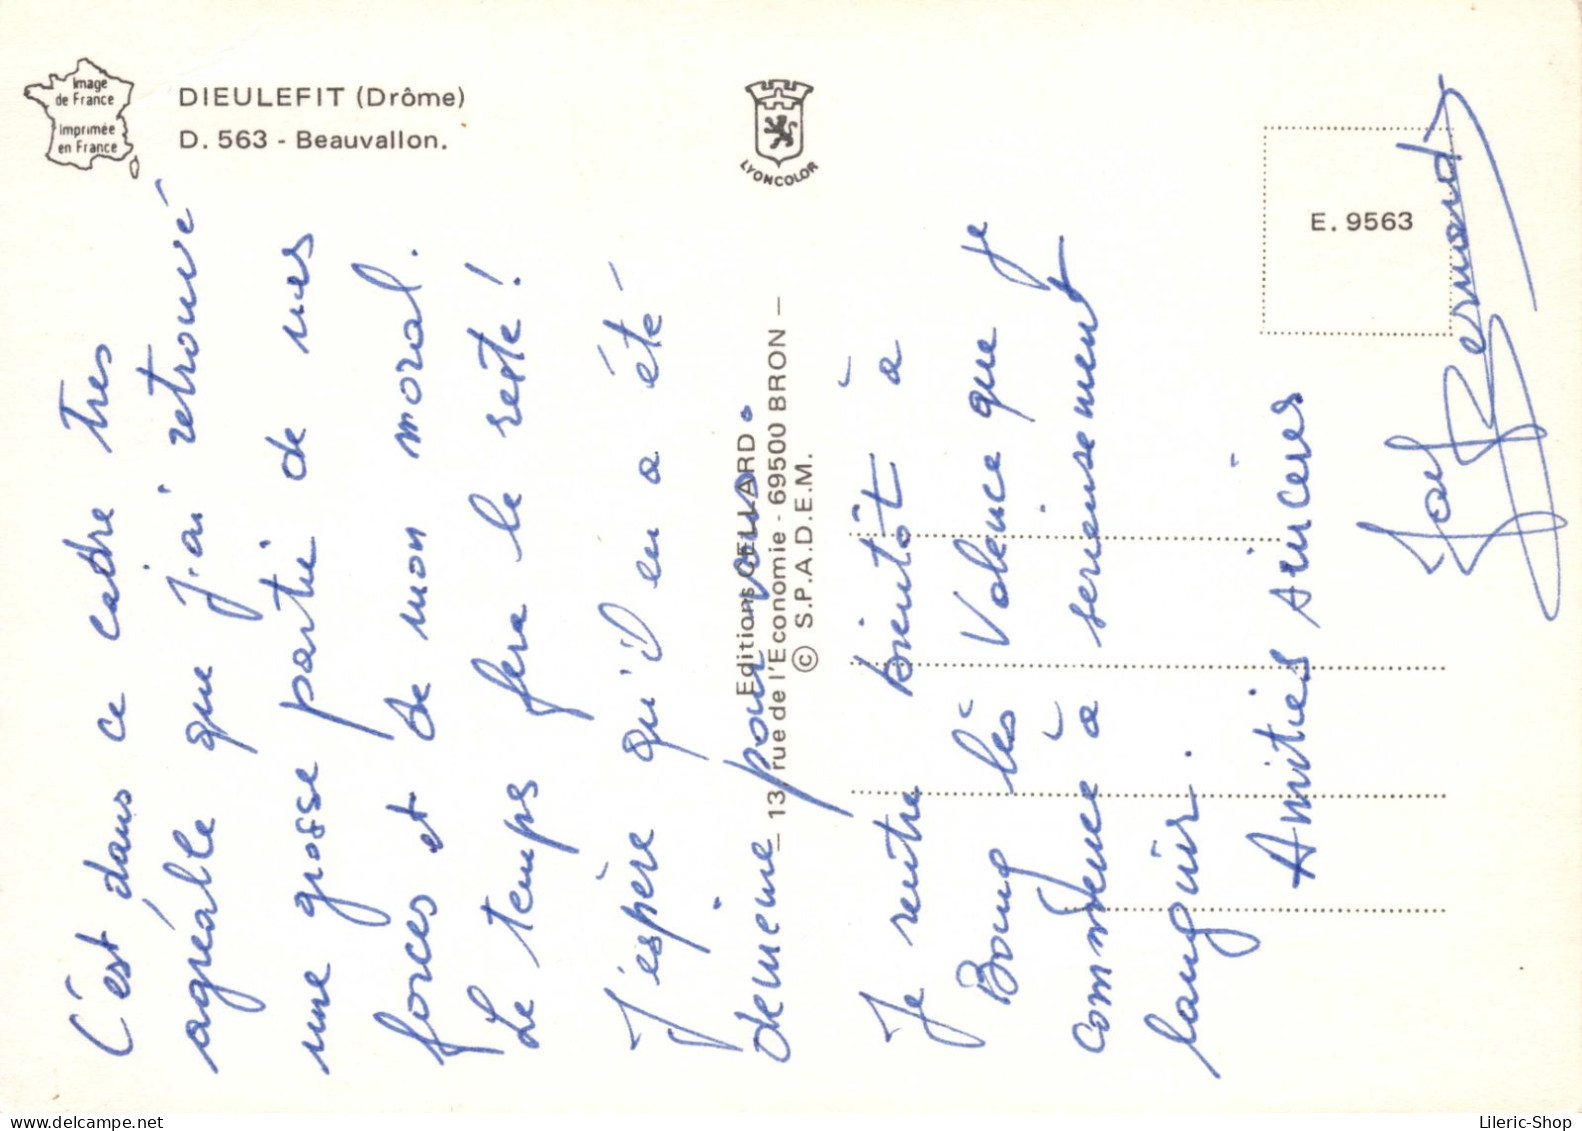 Image
de France
Imprimée
en France
DIEULEFIT (Drôme)
D. 563 - Beauvallon.
LYONCOLOR
E. 9563
Editions CELLARD
— 13, rue de l'Economie - 69500 BRON —
© S.P.A.D.E.M.
C'est dans ce cadre très
agréable que j'ai retrouvé
une grosse partie de mes
forces et de mon moral.
Le temps fera le reste !
J'espère qu'il en a été
de même pour vous.
Je rentre bientôt à
Bourg lès Valence que je
commence à
serieusement
languir.
Amitiés sincères
Bernard
Lileric-Shop